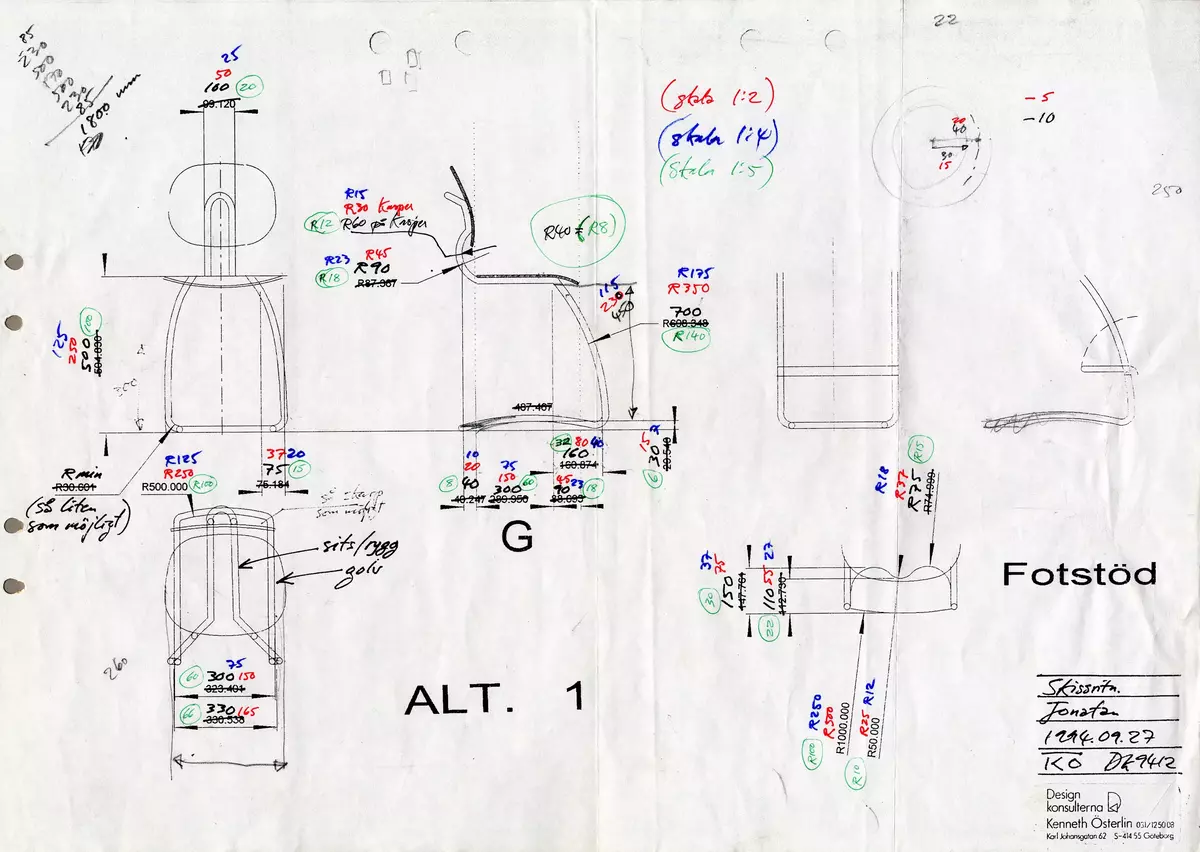 22
25
50
100 20
99.120
1800 mm
(skala 1:2)
(skala 1:4)
(skala 1:5)
-5
-10
20
40
30
15
250
R15
R30 Karper
R12 R60 på Kröjer
R23 R45
R18 R90
R87.367
R40 = R8
115
230
450
R175
R350
700
R698.348
R140
125
250
500 100
504.030
350
487.467
R min
R30.601
(så liten
som möjligt)
R125
R250
R500.000 R100
37 20
75 15
75.184
så skarp
som möjligt
10
20
8 40
40.247
75
150
300 60
289.950
32 80 40
160
160.874
45 23
90 18
88.693
7
15
30
6
20.540
G
sits/rygg
golv
75
60 300 150
323.401
66 330 165
330.538
260
ALT. 1
R18
R37
R75
R15
R74.999
37
75
150
30
147.764
27
55
110
22
112.730
Fotstöd
R250
R500
R1000.000
R100
R12
R25
R50.000
R10
Skissritn.
Jonatan
1994.09.27
KÖ DK9412
Design
konsulterna
Kenneth Österlin 031/125008
Karl Johansgatan 62 S-414 55 Göteborg